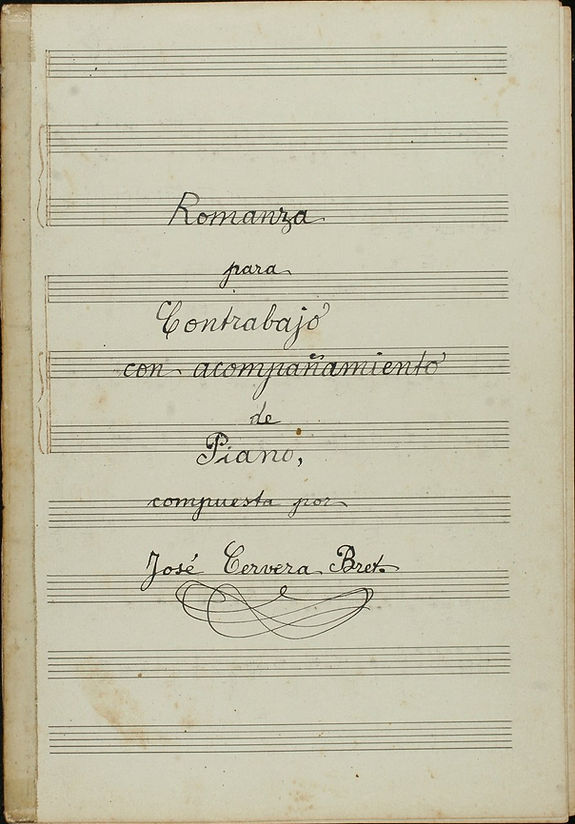 Romanza
para
Contrabajo
con acompañamiento
de
Piano,
compuesta por
José Cervera Bret.